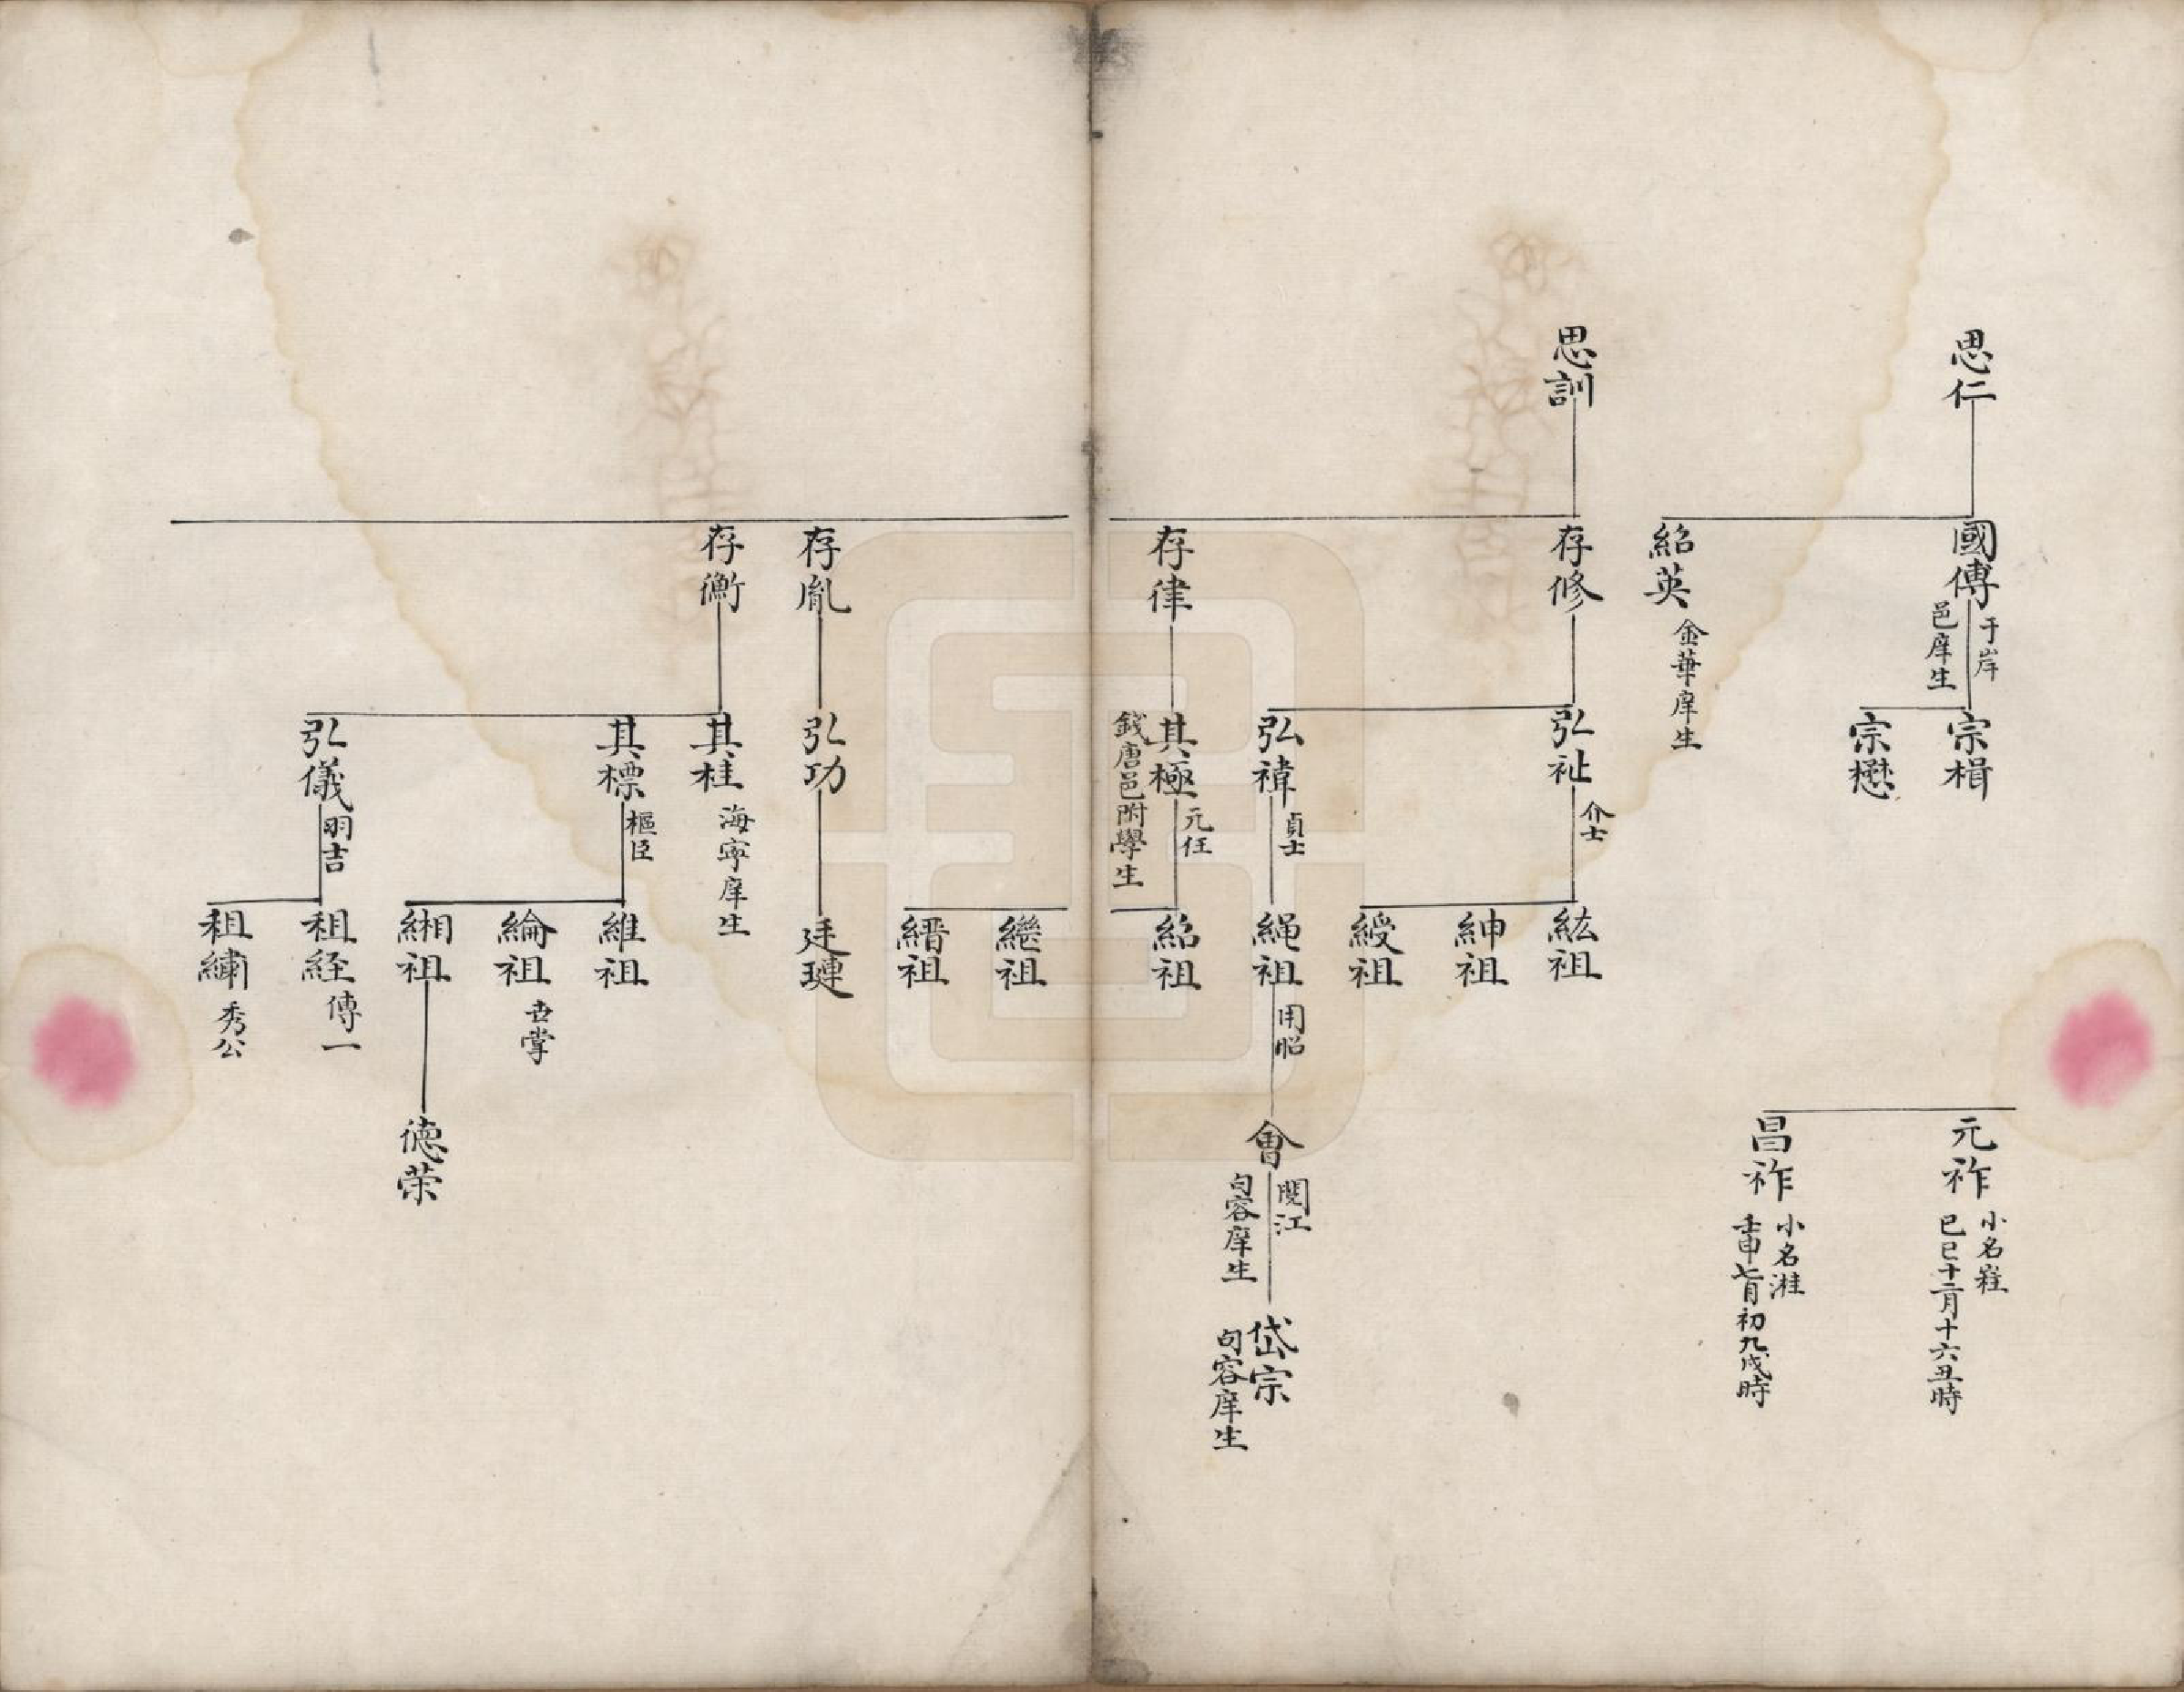 思仁
國傅
于岸
邑庠生
紹英
金華庠生
宗楫
宗懋
元祚
小名
己巳十二月十六丑時
昌祚
小名溎
壬申七月初九戌時
思訓
存修
弘祉
介士
紘祖
紳祖
綬祖
弘禕
貞士
繩祖
用昭
會
閿江
句容庠生
岱宗
句容庠生
存律
其極
元任
錢唐邑附學生
紹祖
繼祖
縉祖
存胤
弘功
廷璉
存衡
其桂
海寧庠生
其標
樞臣
維祖
綸祖
世掌
緗祖
德荣
弘儀
羽吉
祖経
傳一
祖繡
秀公